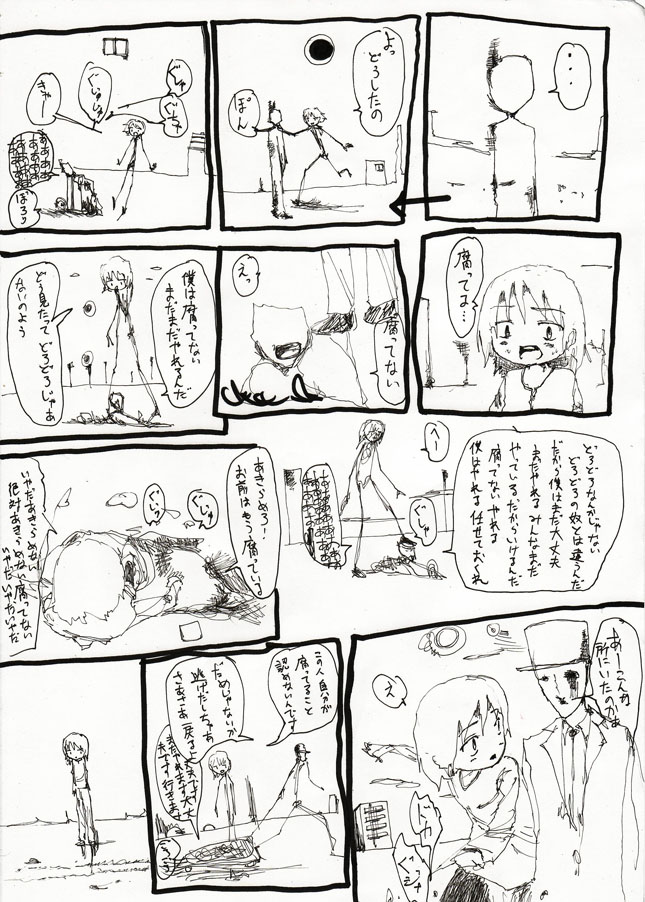 ・・・
よっ
どうしたの
ぽん
ぐしゃ
ぐしゃ
ぐしゃ
きゃー
ああああ
ぼろり
腐ってる…
腐ってない
えっ
僕は腐ってない
まだまだやれるんだ
どう見たって どろどろじゃあ
ないのよう
どろどろなんかじゃない
どろどろの奴とは違うんだ
だから僕はまだ大丈夫
まだやれる みんなまだ
やっている だからいけるんだ
腐ってない やれる
僕はやれる 任せておくれ
へー
ぐしゃ
あきらめろ!
お前はもう腐っている
ぐしゃ
ぐしっ
いやだあきらめない
絶対あきらめない 腐ってない
いやだいやだいやだ
あーこんな
所にいたのかぁ
え
この人 自分が
腐ってること
認めないんです
だめじゃないか
逃げだしちゃあ
さあさあ 戻るよ